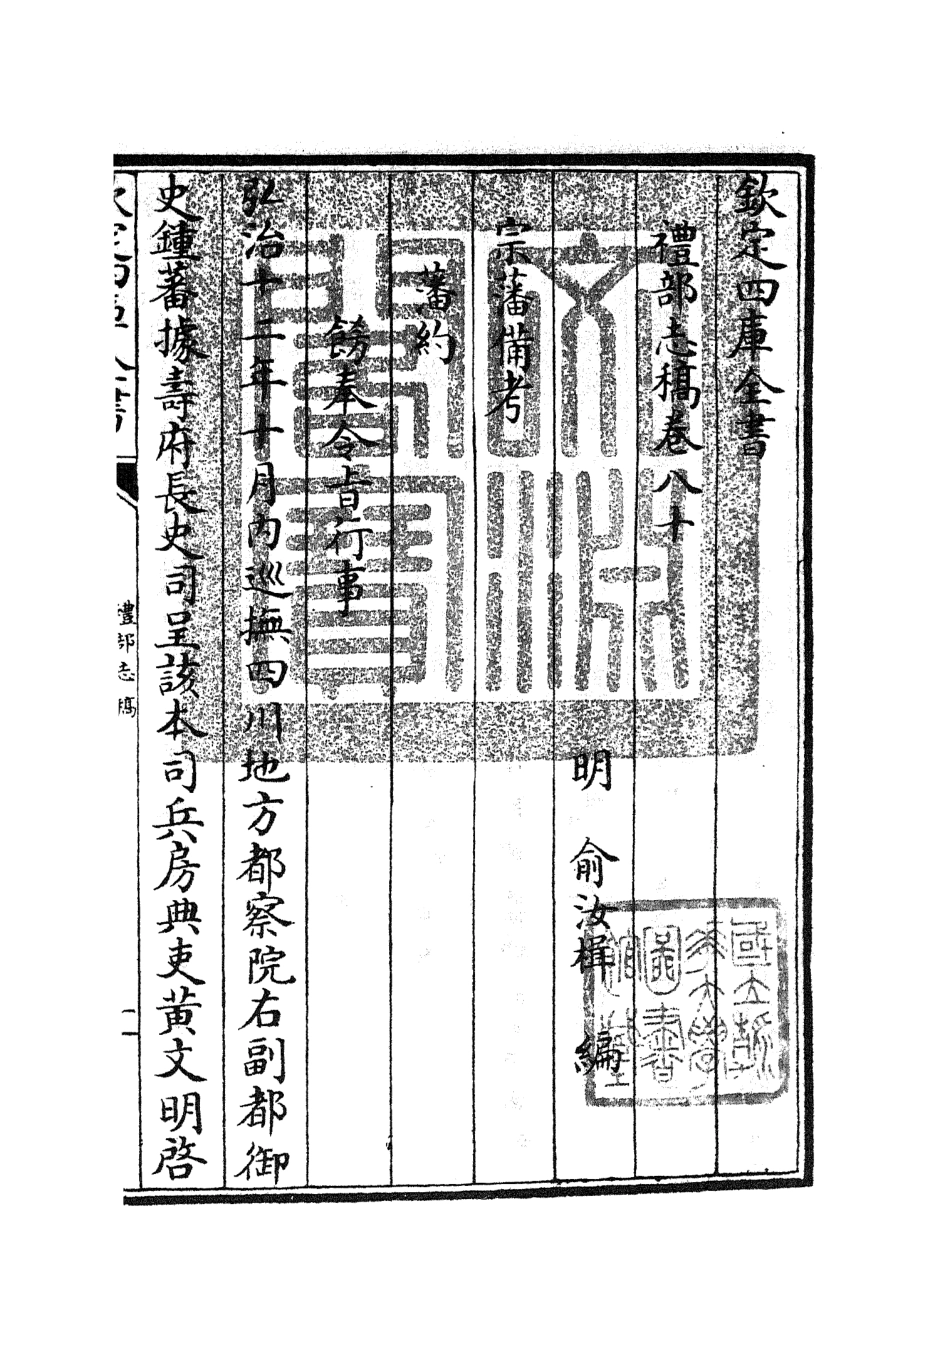 欽定四庫全書
禮部志稿卷八十
明 俞汝楫 編
宗藩備考
藩約
飭奉令旨行事
弘治十二年十月內巡撫四川地方都察院右副都御
史鍾蕃據壽府長史司呈該本司兵房典吏黃文明啓
欽定四庫全書
禮部志稿
一
文淵閣寶
國立浙江大學圖書館藏